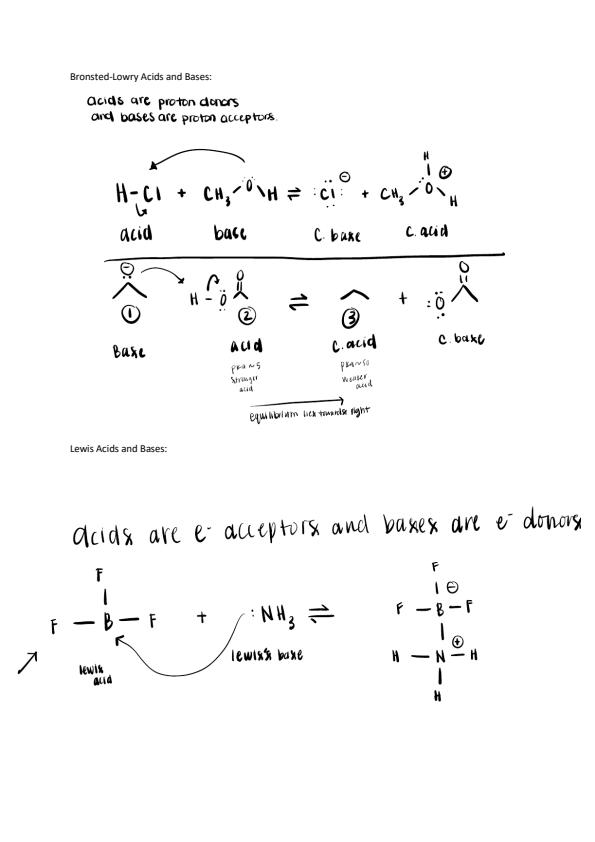 Bronsted-Lowry Acids and Bases:
acids are proton donors
and bases are proton acceptors.
H-Cl + CH₃-Ö-H ⇌ :Cl:⊖ + CH₃-O-H H ⊕
acid base C. base C. acid
⊖ H-Ö O ⇌ + :Ö O
① ② ③
Base acid C. acid C. base
pka~5 pka~50
stronger weaker
acid acid
equilibrium lies towards right
Lewis Acids and Bases:
acids are e⁻ acceptors and bases are e⁻ donors
F F
F - B - F + :NH₃ ⇌ F - B - F ⊖
lewis lewis's base H - N - H ⊕
acid
H